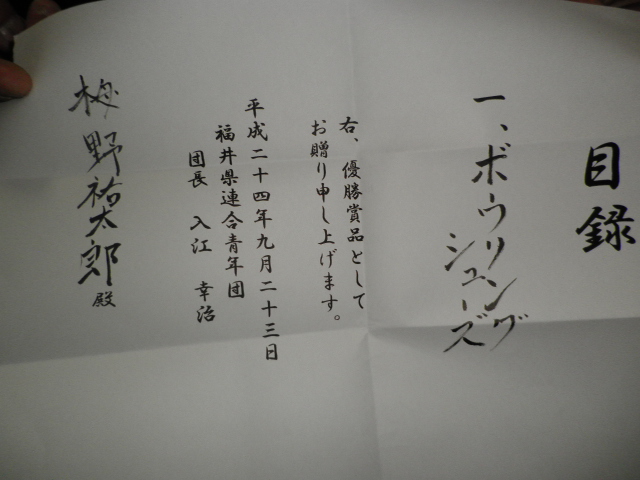 目録
一、ボウリング
シューズ
右、優勝賞品として
お贈り申し上げます。
平成二十四年九月二十三日
福井県連合青年団
団長 入江 幸治
栂野祐太郎殿